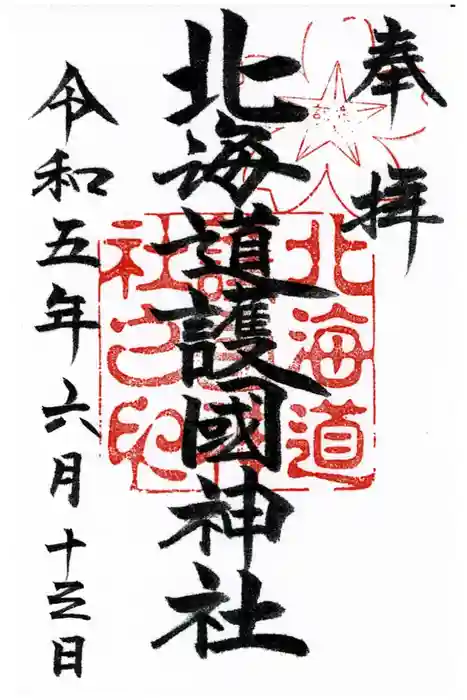 奉拝
北海道護國神社
北海道
社之印
令和五年六月十三日